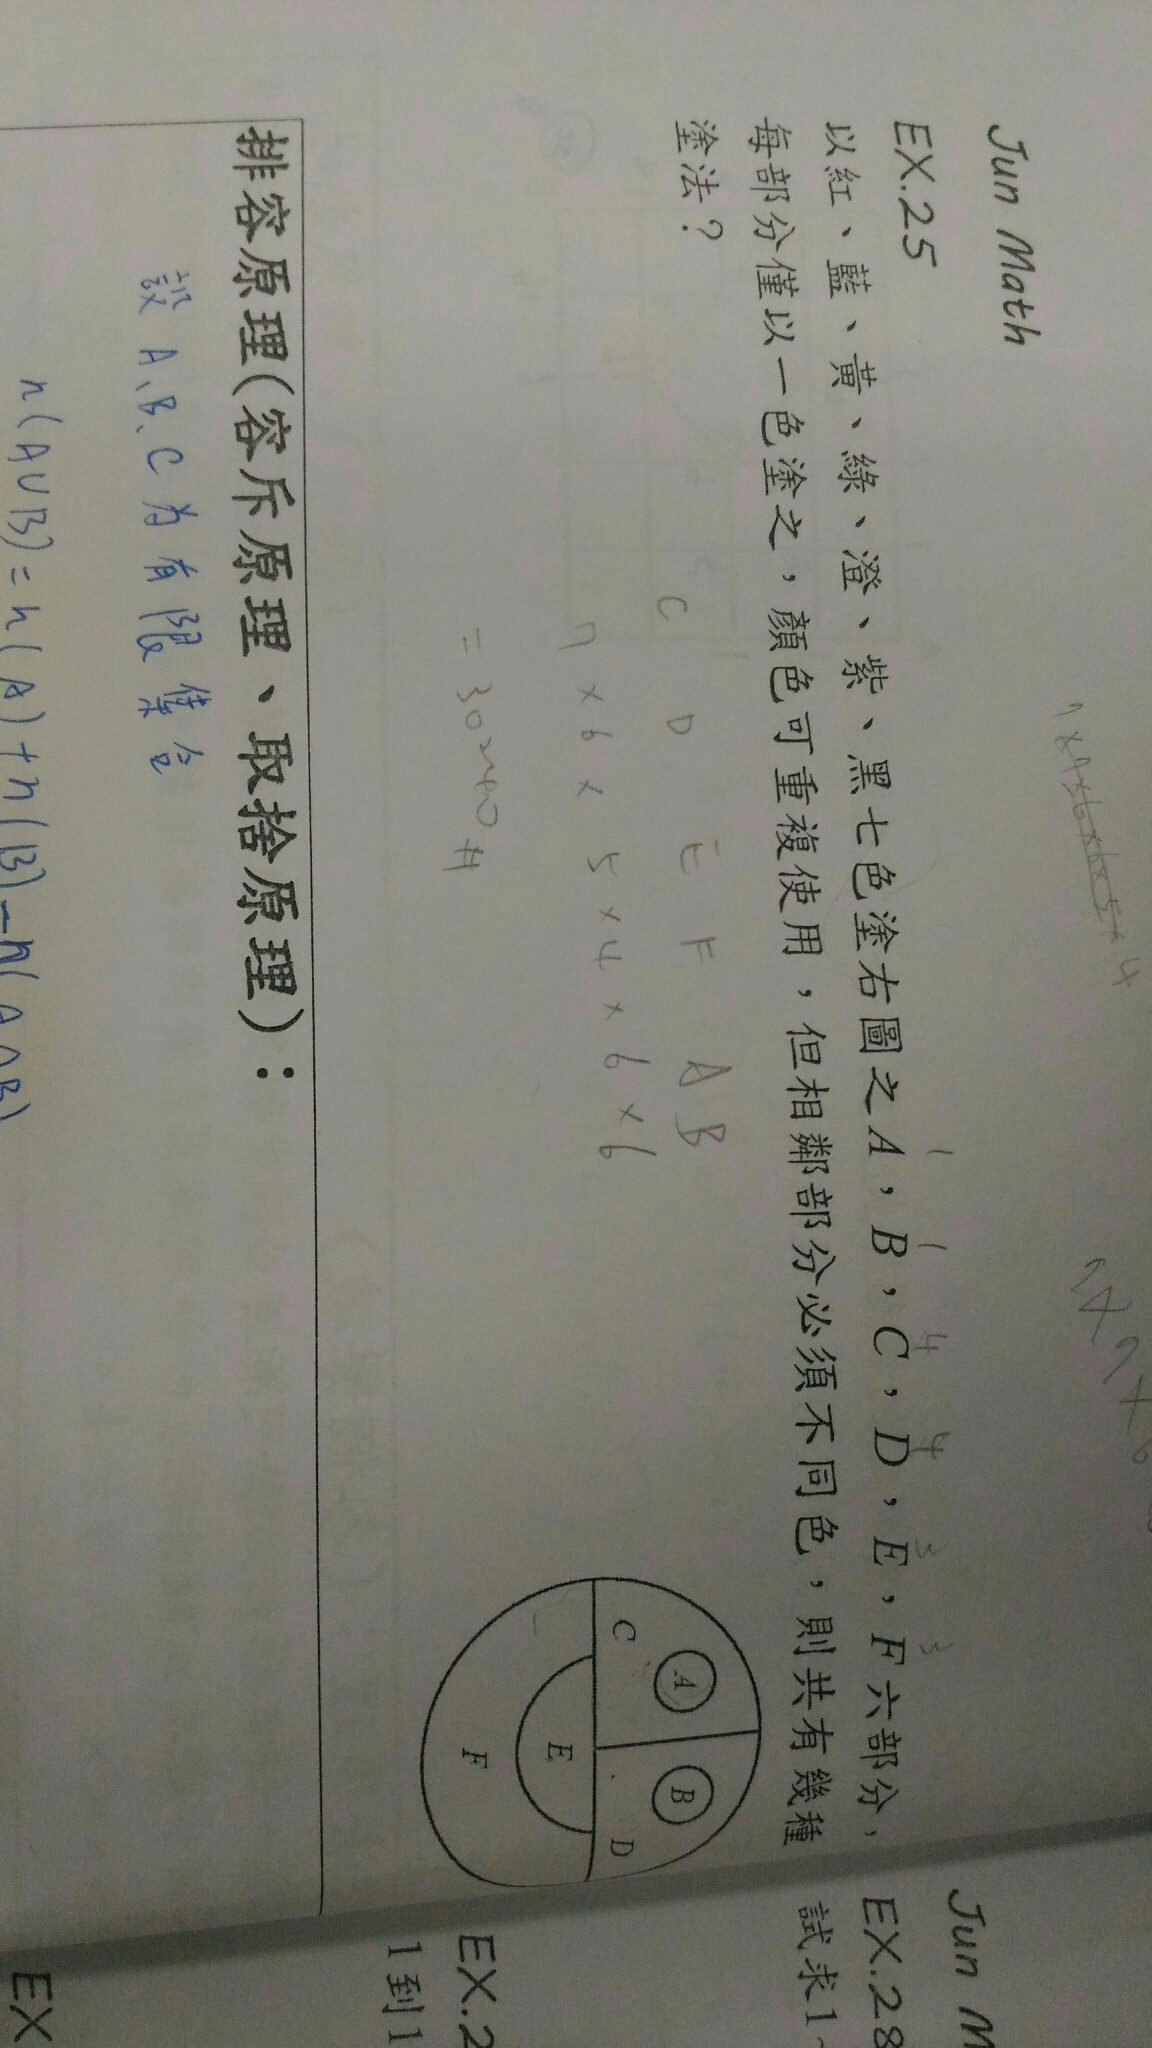 Jun Math
7×7×6×6×5×4
EX.25
以紅、藍、黃、綠、澄、紫、黑七色塗右圖之A，B，C，D，E，F六部分，
1 1 4 4 3 3
每部分僅以一色塗之，顏色可重複使用，但相鄰部分必須不同色，則共有幾種
塗法？
C D E F A B
7×6×5×4×6×6
=30240#
A
B
C
D
E
F
排容原理(容斥原理、取捨原理)：
設A、B、C為有限集合
n(A∪B)=n(A)+n(B)-n(A∩B)
Jun M
EX.28
試求1~
EX.2
1到1
EX